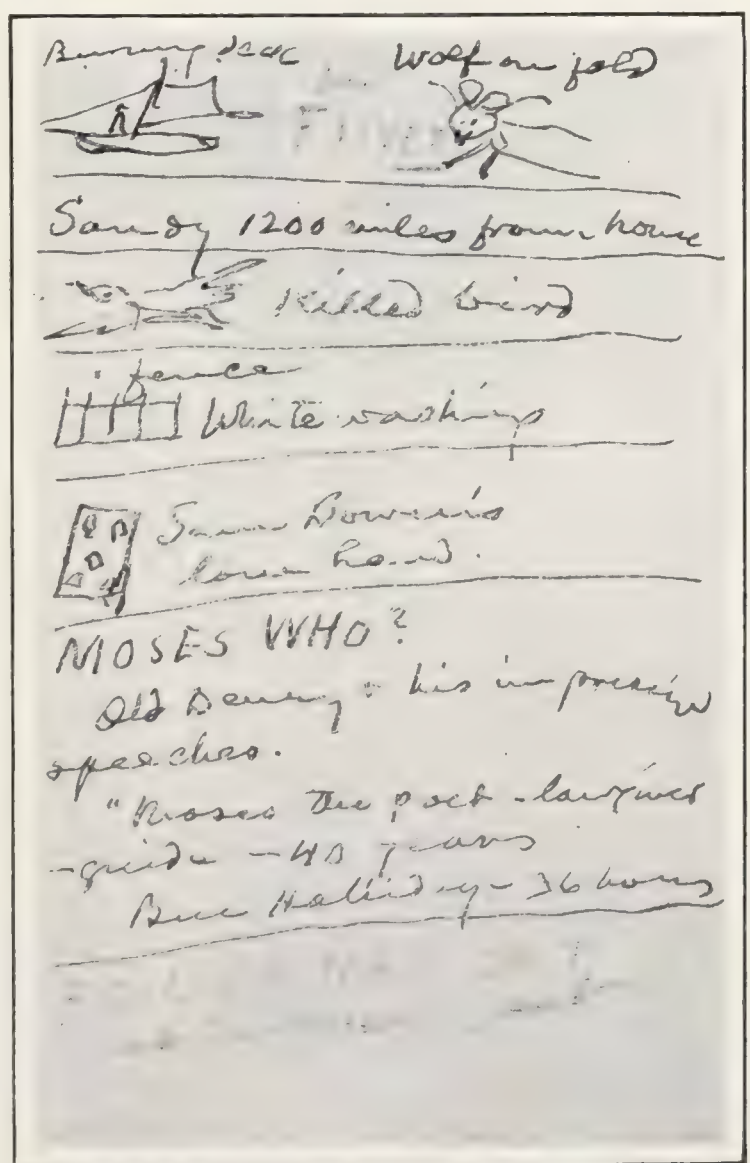 Burning deck    Wolf on fold
Sandy 1200 miles from house
Killed bird
fence
White washing
Sam
low hand.
MOSES WHO?
Old Deuny & his impressive
speeches.
"Moses the poet - lawgiver
-guide - 40 years
Ben Holliday - 36 hours